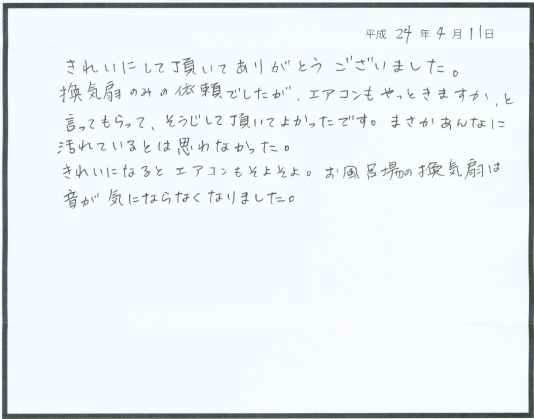 平成 24 年 4 月 11日
きれいにして頂いてありがとうございました。
換気扇のみの依頼でしたが、エアコンもやっときますか、と
言ってもらって、そうじして頂いてよかったです。まさかあんなに
汚れているとは思わなかった。
きれいになるとエアコンもそよそよ。お風呂場の換気扇は
音が気にならなくなりました。